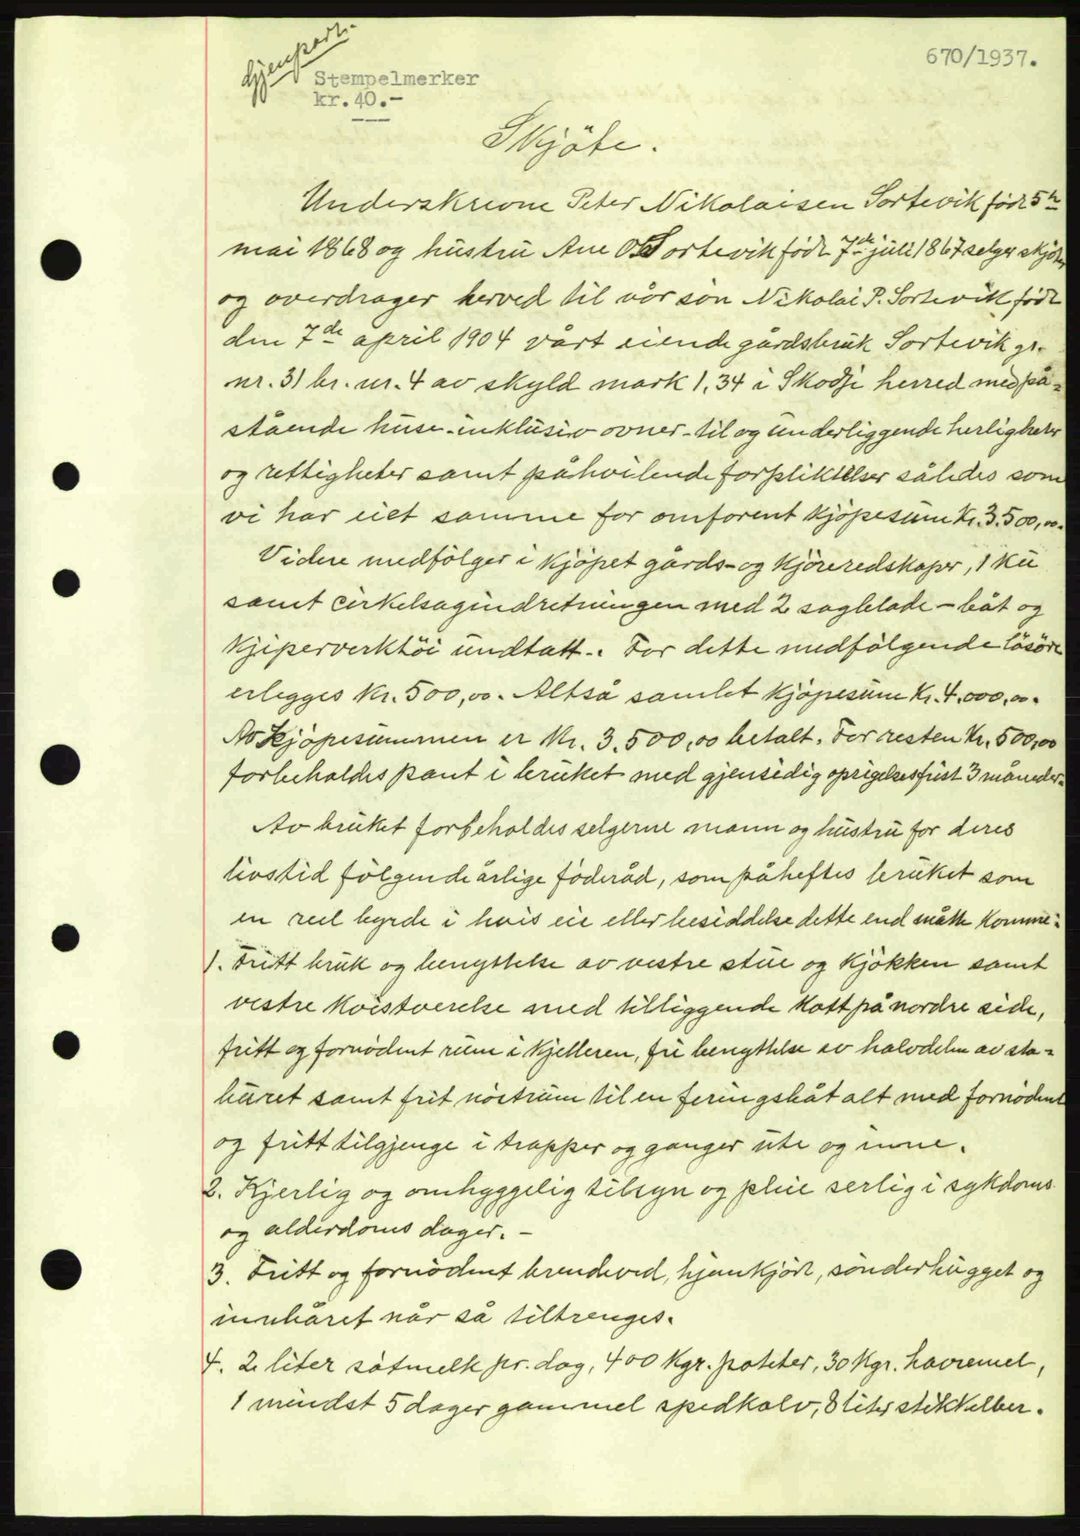 Gjenpart.
670/1937.
Stempelmerker
kr.40.-
Skjöte.
Underskrevne Peter Nikolaisen Sortevik født 5te
mai 1868 og hustru Ane O. Sortevik født 7de juli 1867 selger skjöter
og overdrager herved til vår sön Nikolai P. Sortevik født
den 7de april 1904 vårt eiende gårdsbruk Sortevik gr.
nr. 31 br. nr. 4 av skyld mark 1,34 i Skodje herred med på-
stående huse - inklusiv ovner - til og underliggende herligheter
og rettigheter samt påhvilende forpliktelser således som
vi har eiet samme for omforent kjöpesum Kr. 3.500,00.
Videre medfölger i kjöpet gårds- og kjöreredskaper, 1 ku
samt cirkelsagindretningen med 2 sagblade - båt og
kjiperverktöi undtatt -. For dette medfölgende lösöre
erlegges Kr. 500,00. Altså samlet kjöpesum Kr. 4.000,00.
Av kjöpesummen er Kr. 3.500,00 betalt. For resten Kr. 500,00
forbeholdes pant i bruket med gjensidig opsigelsesfrist 3 måneder.
Av bruket forbeholdes selgerne mann og hustru for deres
livstid fölgende årlige föderåd, som påheftes bruket som
en reel byrde i hvis eie eller besiddelse dette end måtte komme:
1. Fritt bruk og benyttelse av vestre stue og kjökken samt
vestre kvistværelse med tilliggende kott på nordre side,
fritt og fornödent rum i kjelleren, fri benyttelse av halvdelen av sta-
buret samt frit nöstrum til en feringsbåt alt med fornödent
og fritt tilgjenge i trapper og ganger ute og inne.
2. Kjerlig og omhyggelig tilsyn og pleie serlig i sykdoms
og alderdoms dager. -
3. Fritt og fornödent brendeved, hjemkjört, sönderhugget og
innbåret når så tiltrenges.
4. 2 liter sötmelk pr. dag, 400 kgr. poteter, 30 kgr. havremel,
1 mindst 5 dager gammel spedkalv, 8 liter stikkelber.